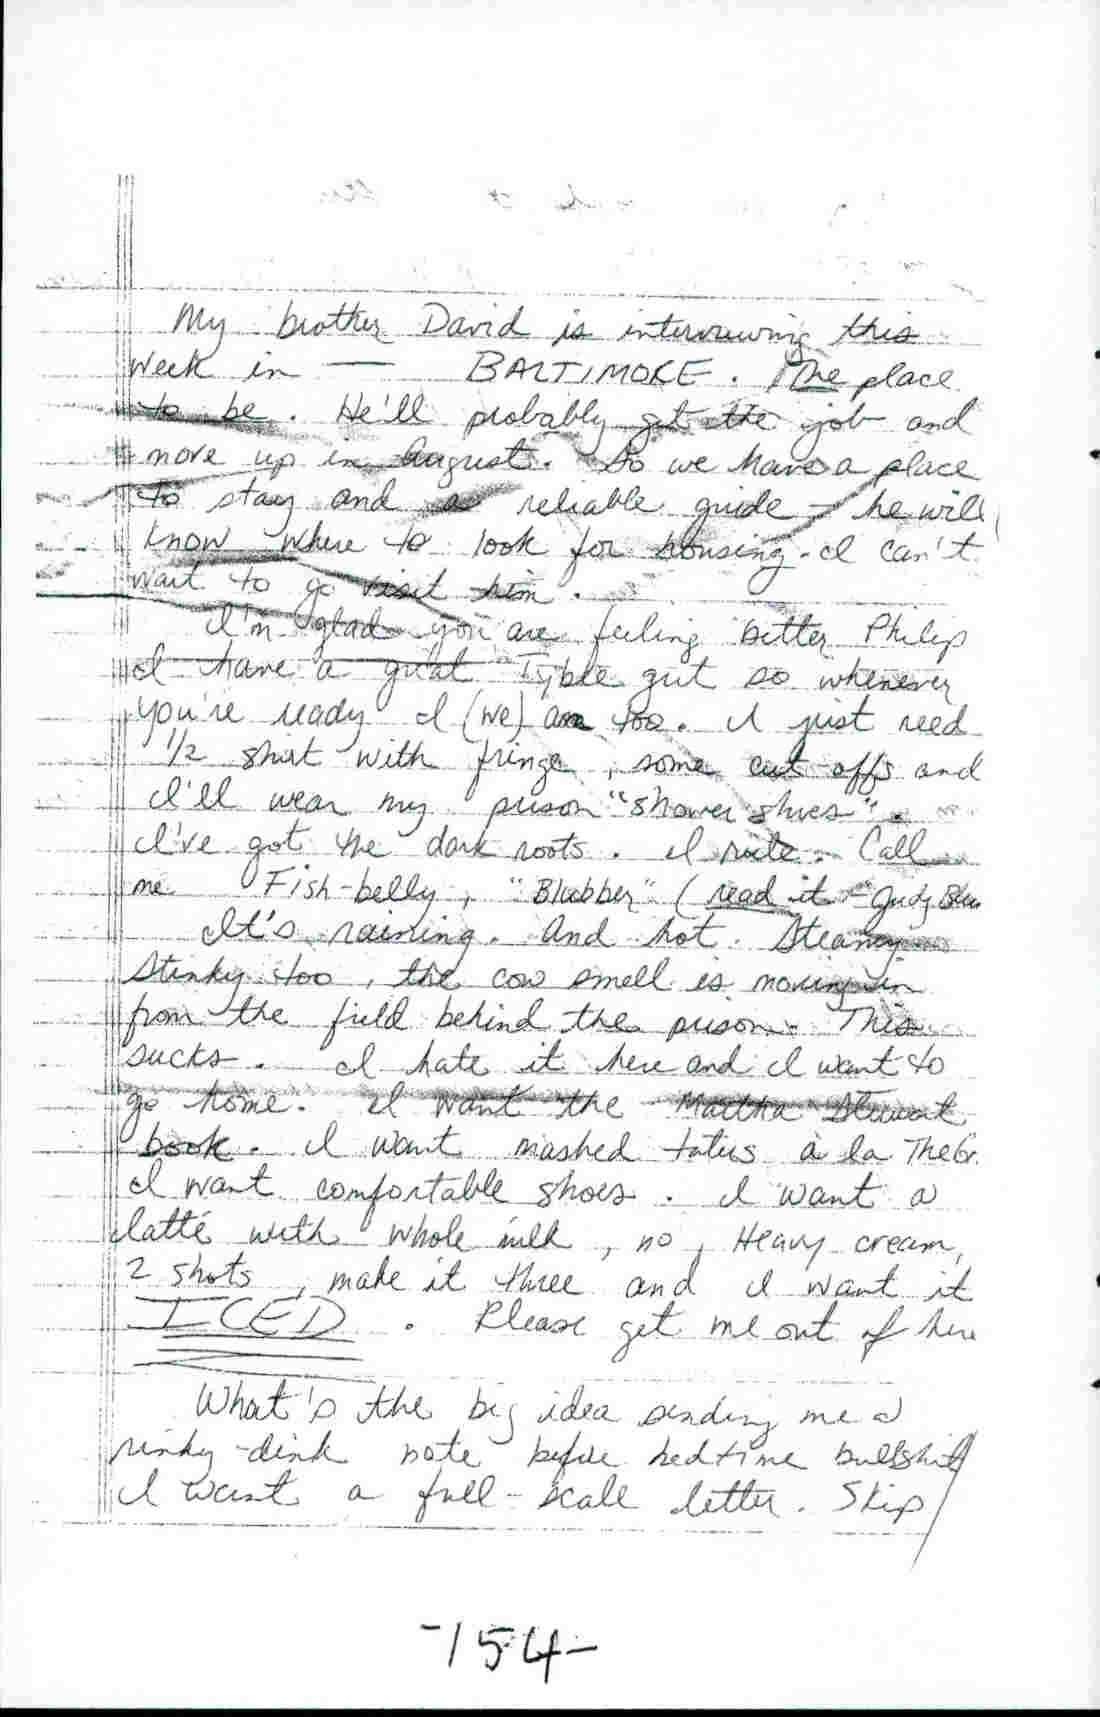 My brother David is interviewing this
week in — BALTIMORE. The place
to be. He'll probably get the job and
move up in August. So we have a place
to stay and a reliable guide - he will
know where to look for housing. I can't
wait to go visit him.
I'm glad you are feeling better Philip
I have a great gut so whenever
you're ready I (we) am too. I just need
1/2 shirt with fringe, some cut offs and
I'll wear my prison "shower shoes".
I've got the dark roots. I rate. Call
me Fish-belly, "Blubber" (read it - Judy Blu
It's raining. And hot. Steamy
Stinky too, the cow smell is moving in
from the field behind the prison. This
sucks. I hate it here and I want to
go home. I want the Martha Stewart
book. I want mashed taters à la
I want comfortable shoes. I want a
latté with whole milk, no, Heavy cream,
2 shots, make it three and I want it
ICED. Please get me out of here
What's the big idea sending me a
rinky-dink note before bedtime bullshit
I want a full-scale letter. Skip
-154-